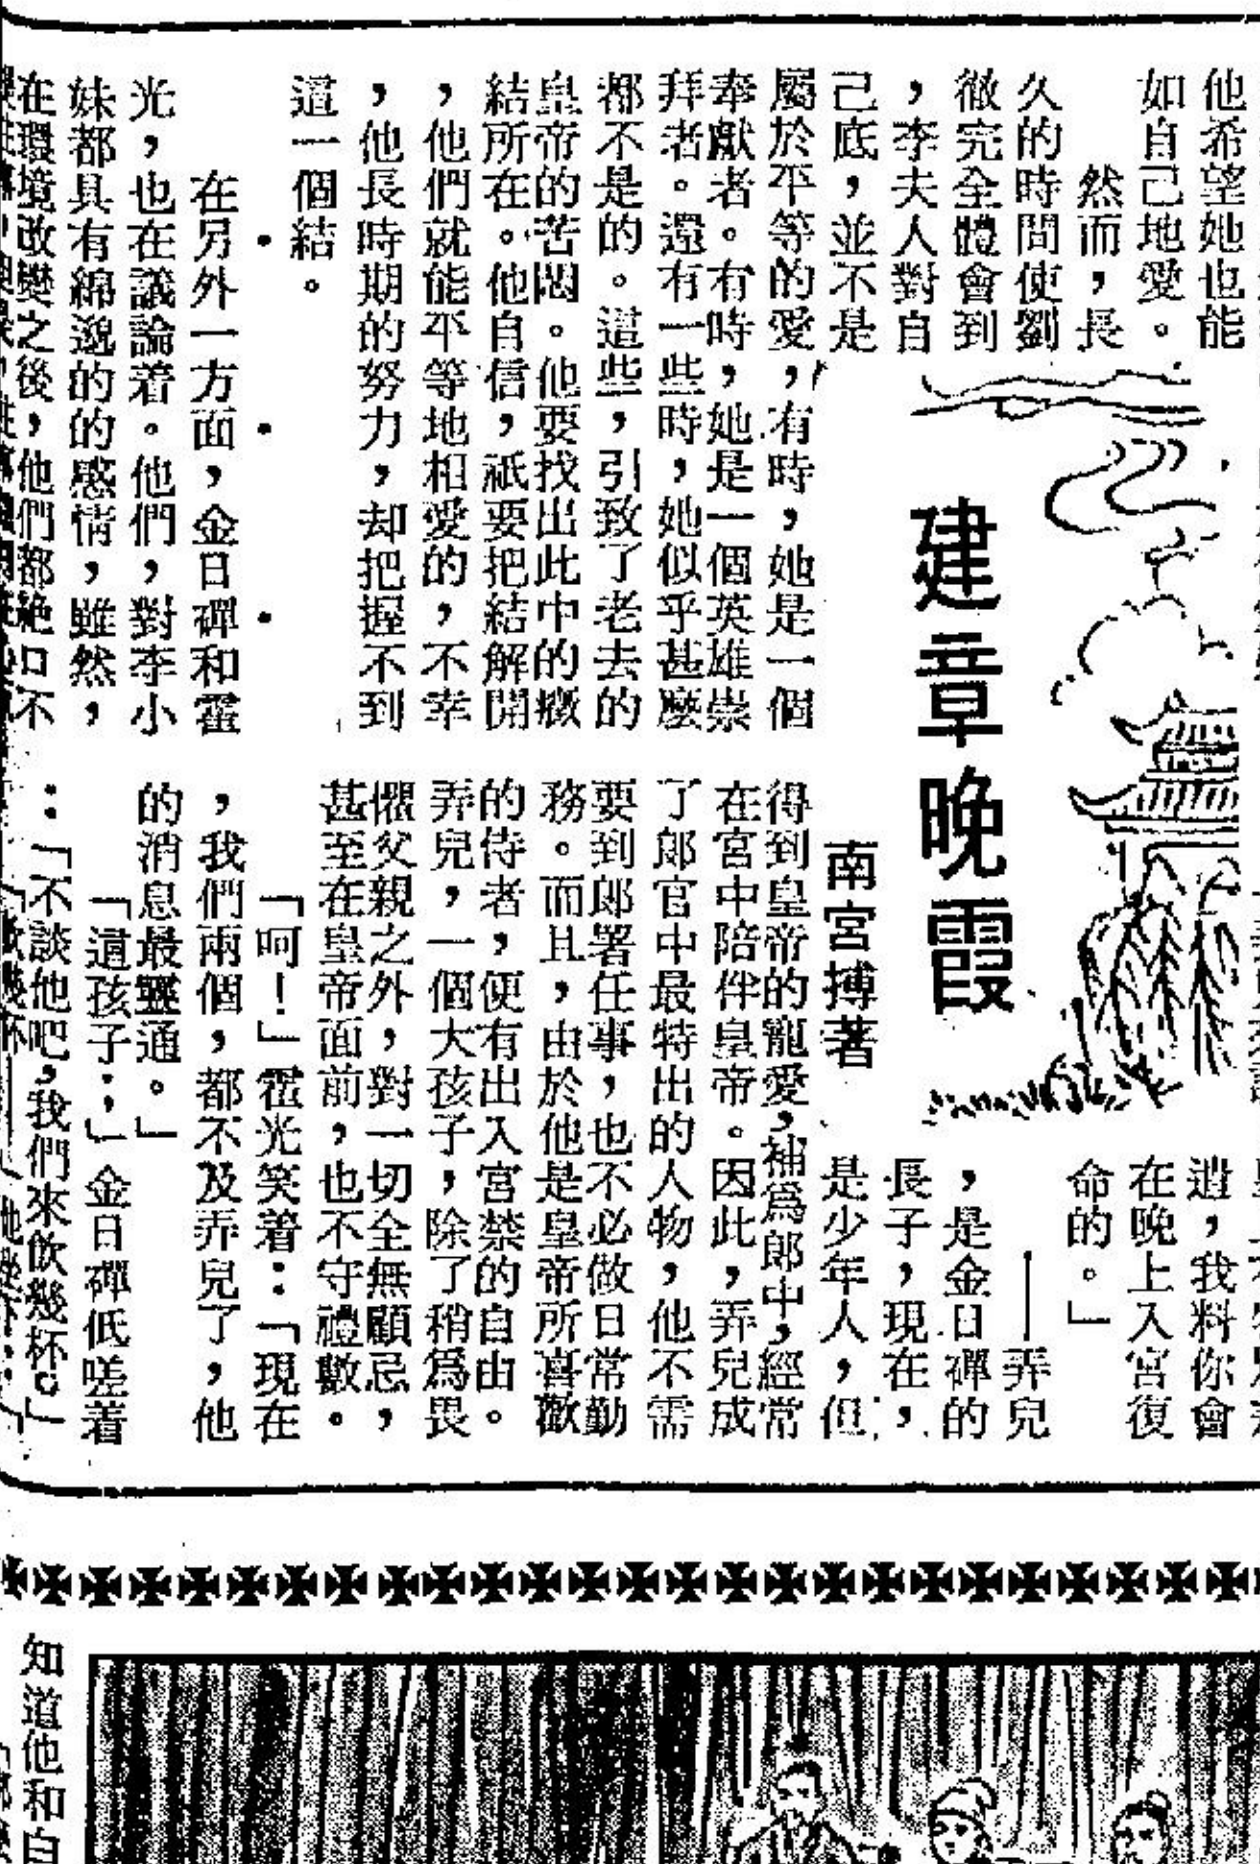 他希望她也能
如自己地愛。
然而，長
久的時間使劉
徹完全體會到
，李夫人對自
己底，並不是
屬於平等的愛，有時，她是一個
奉獻者。有時，她是一個英雄崇
拜者。還有一些時，她似乎甚麼
都不是的。這些，引致了老去的
皇帝的苦悶。他要找出此中的癥
結所在。他自信，祇要把結解開
，他們就能平等地相愛的，不幸
，他長時期的努力，却把握不到
這一個結。
・・・
在另外一方面，金日磾和霍
光，也在議論着。他們，對李小
妹都具有綿邈的的感情，雖然，
在環境改變之後，他們都絶口不
建章晚霞
南宮搏著
遺，我料你會
在晚上入宮復
命的。」
——弄兒
，是金日磾的
長子，現在，
是少年人，但
得到皇帝的寵愛，補爲郎中，經常
在宮中陪伴皇帝。因此，弄兒成
了郎官中最特出的人物，他不需
要到郎署任事，也不必做日常勤
務。而且，由於他是皇帝所喜歡
的侍者，便有出入宮禁的自由。
弄兒，一個大孩子，除了稍爲畏
懼父親之外，對一切全無顧忌，
甚至在皇帝面前，也不守禮數。
「呵！」霍光笑着：「現在
，我們兩個，都不及弄兒了，他
的消息最靈通。」
「這孩子：，」金日磾低嗟着
：「不談他吧，我們來飲幾杯。」
知道他和自